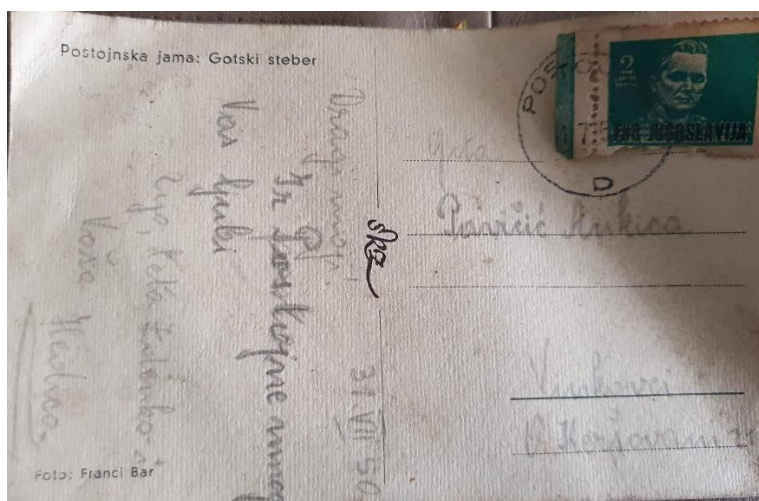 Postojnska jama: Gotski steber
Dragi moji,
Iz Postojne mnogo
Vas ljubi
Zdenko i
Vaša
31 VII 50
skz
POSTO
D
2
FNR JUGOSLAVIJA
Pavičić Ankica
Vinkovci
Foto: Franci Bar